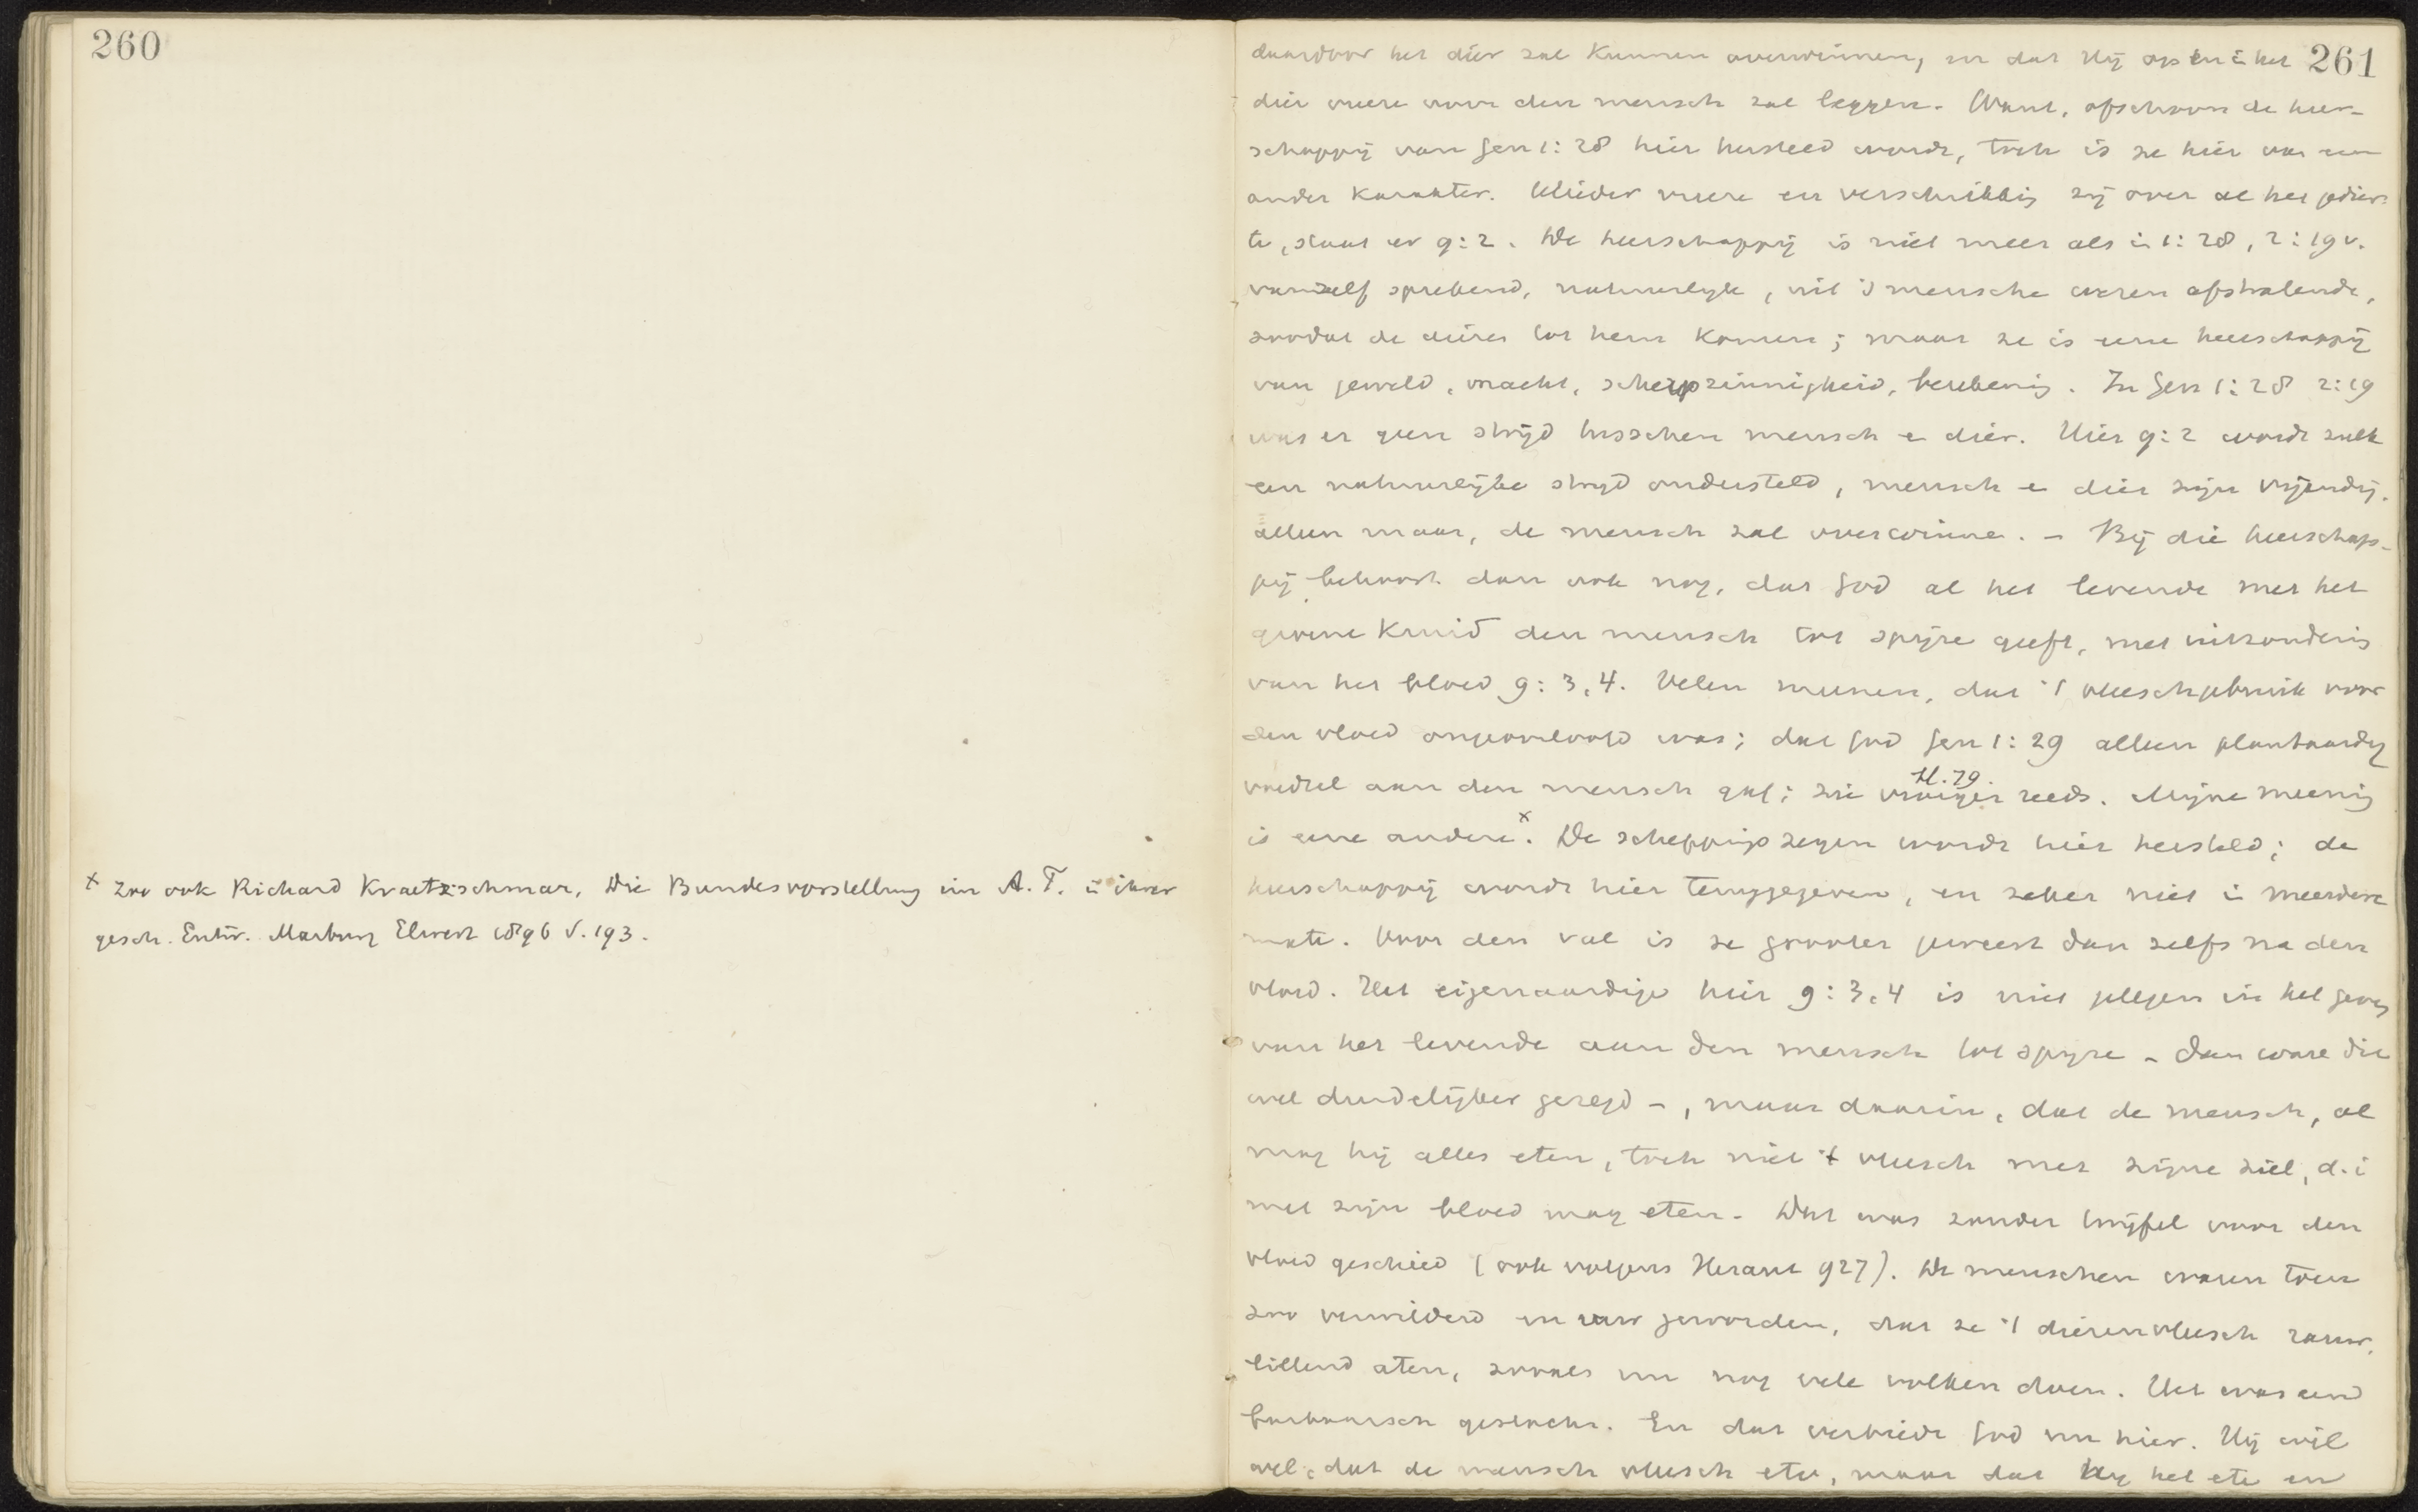 260
× Zoo ook Richard Kraetzschmar, Die Bundesvorstellung im A. T. in ihrer
gesch. Entw. Marburg Elwert 1896 S. 193.
261
daardoor het dier zal kunnen overwinnen, en dat Hij op en in het
dier vreeze voor den mensch zal leggen. Want, ofschoon de heer-
schappij van Gen 1:28 hier hersteld wordt, toch is ze hier van een
ander karakter. Ulieder vreeze en verschrikking zij over al het gedier-
te, staat er 9:2. De heerschappij is niet meer als in 1:28, 2:19v.
vanzelf sprekend, natuurlijk, uit 's menschen wezen afstralende,
zoodat de dieren tot hem komen; maar ze is eene heerschappij
van geweld, macht, scherpzinnigheid, berekening. In Gen 1:28 2:19
was er geen strijd tusschen mensch en dier. Hier 9:2 wordt zulk
een natuurlijke strijd ondersteld, mensch en dier zijn vijandig.
alleen maar, de mensch zal overwinnen. – Bij die heerschap-
pij behoort dan ook nog, dat God al het levende met het
groene kruid den mensch tot spijze geeft, met uitzondering
van het bloed 9:3,4. Velen meenen, dat 't vleeschgebruik voor
den vloed ongeoorloofd was; dat God Gen 1:29 alleen plantaardig
voedsel aan den mensch gaf; zie vroeger reeds. Mijne meening
is eene andere ×. De scheppingszegen wordt hier hersteld; de
heerschappij wordt hier teruggegeven, en zeker niet in meerdere
mate. Voor den val is ze grooter geweest dan zelfs na den
vloed. Het eigenaardige hier 9:3,4 is niet gelegen in het geven
van het levende aan den mensch tot spijze – dan ware dit
wel duidelijker gezegd –, maar daarin, dat de mensch, al
mag hij alles eten, toch niet 't vleesch met zijne ziel, d.i
met zijn bloed mag eten. Dat was zonder twijfel voor den
vloed geschied (ook volgens 927). De menschen waren toen
zoo verwilderd en ruw geworden, dat ze 't dierenvleesch rauw,
lillend aten, zooals nu nog vele volken doen. Het was een
barbaarsch geslacht. En dat verbiedt God nu hier. Hij wil
wel, dat de mensch vleesch ete, maar dat hij het ete en